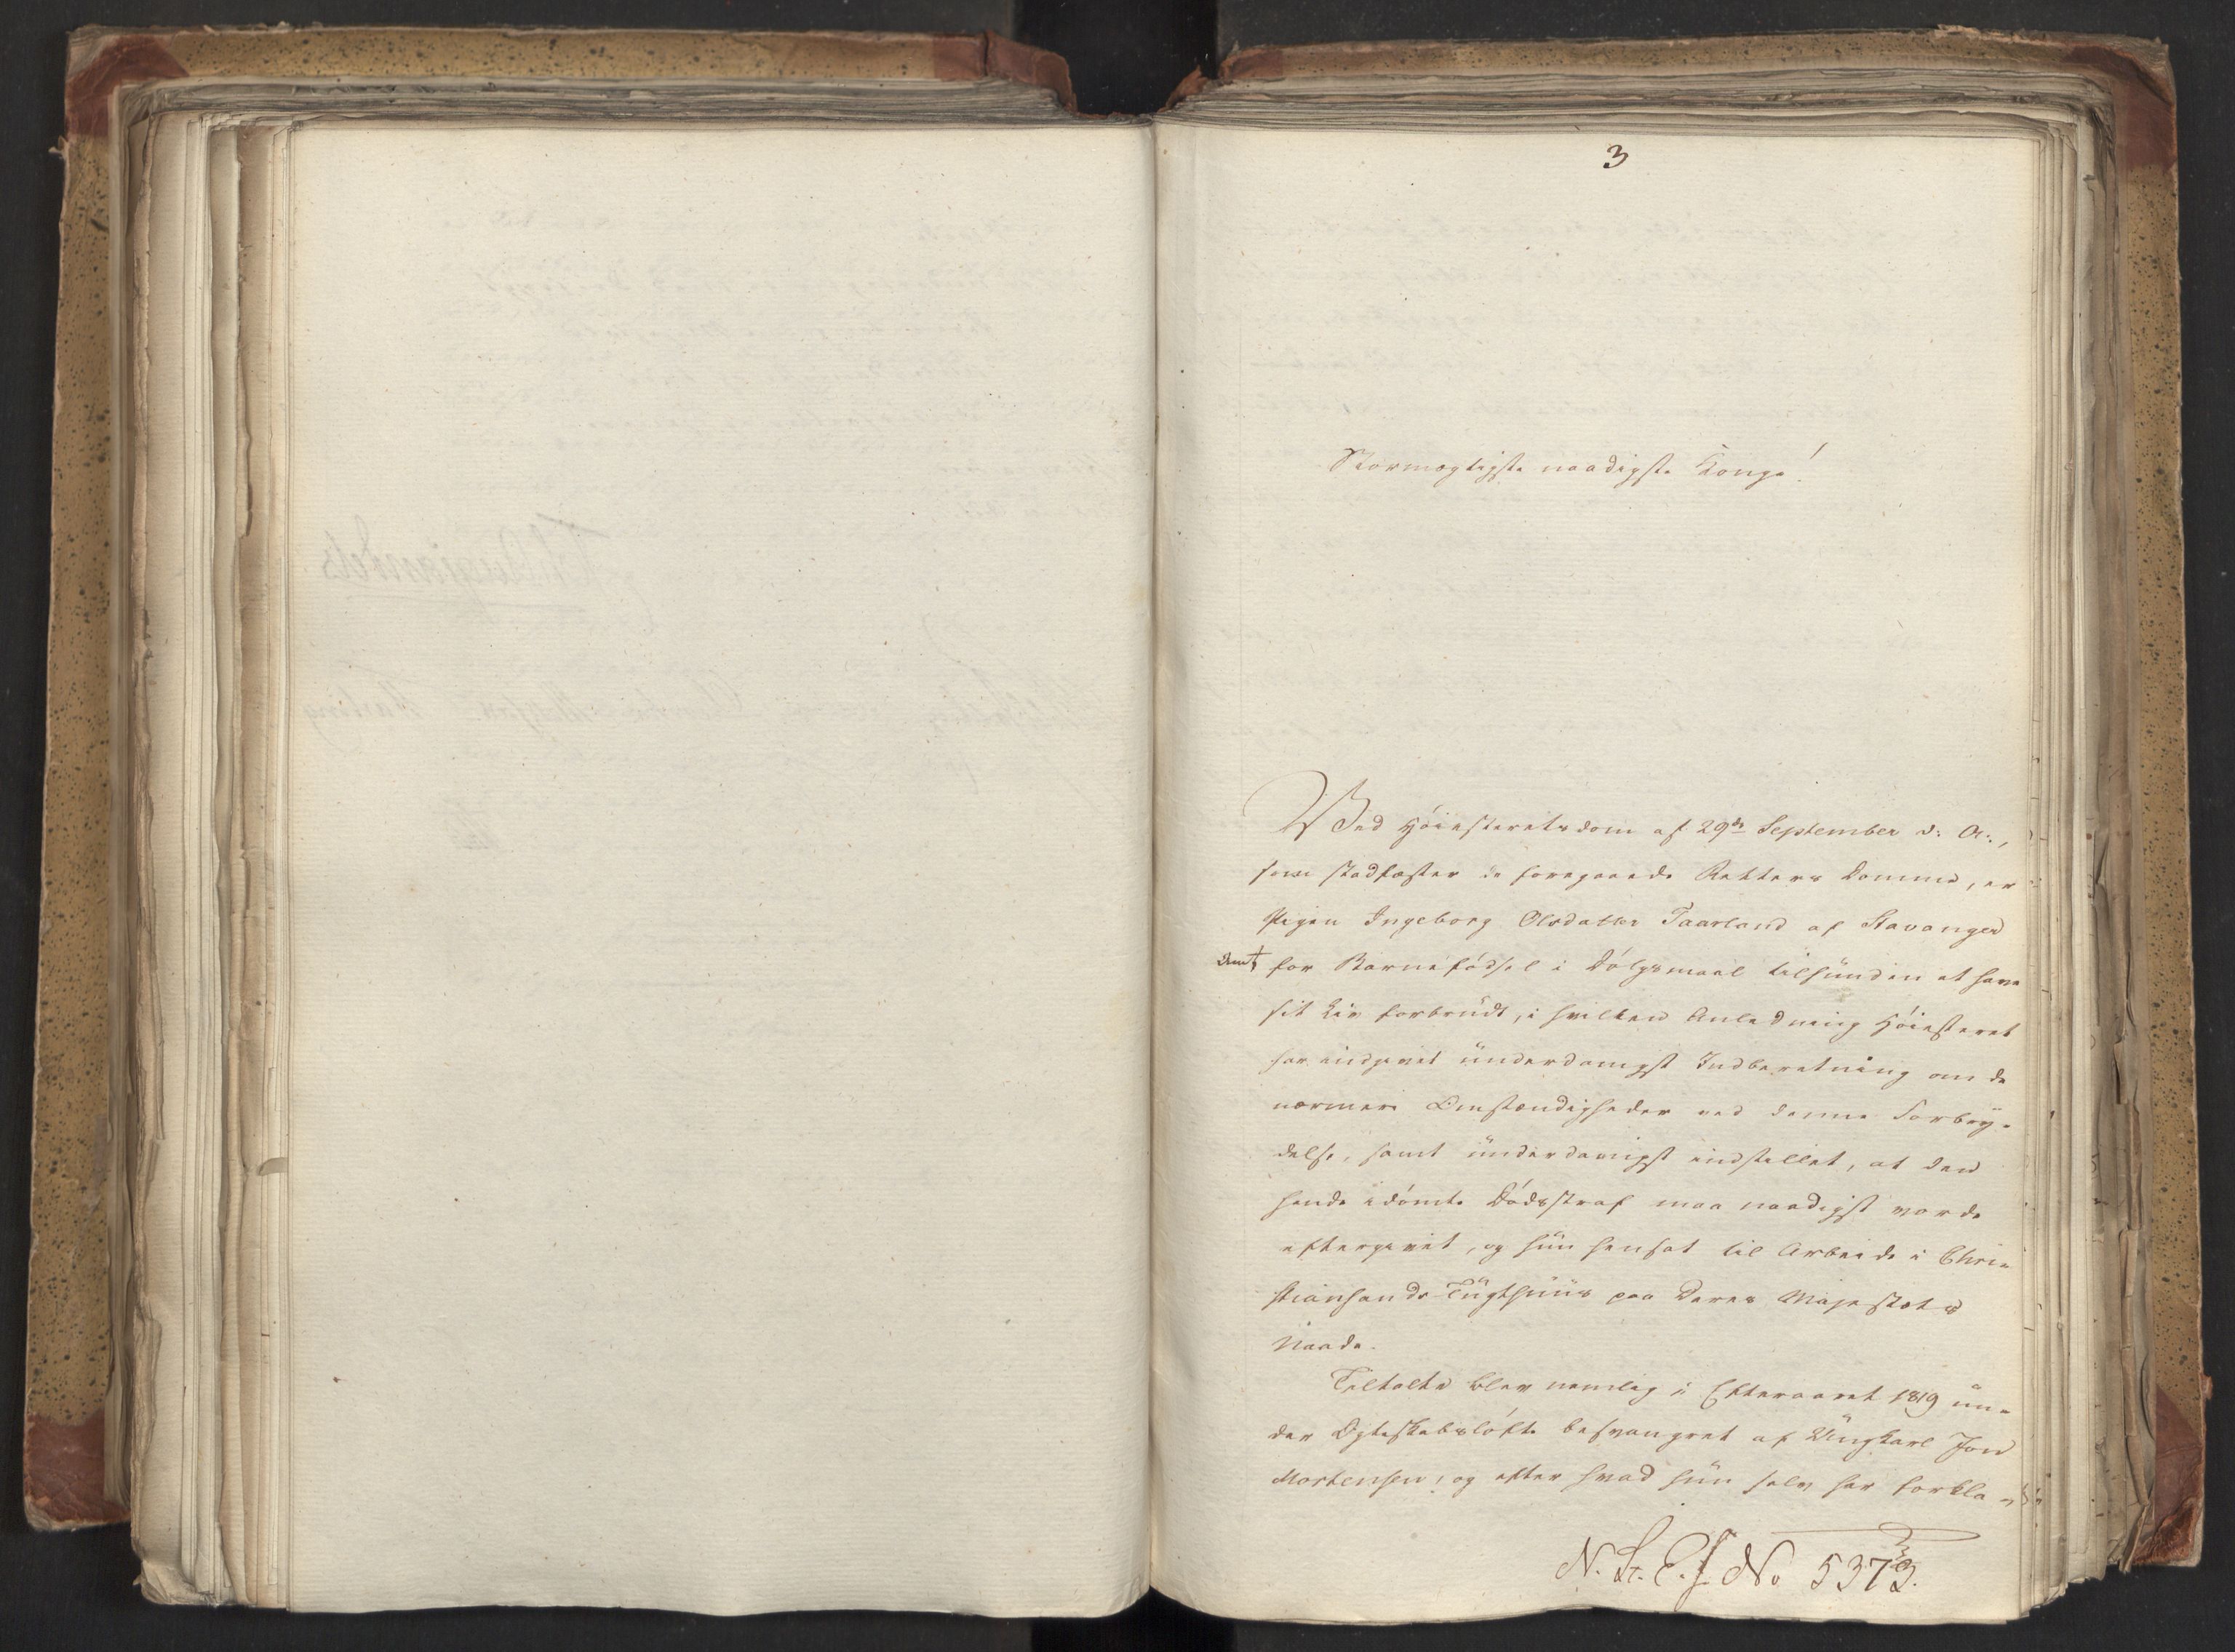 3
Stormægtigste naadigste Konge!
Ved Höiesteretsdom af 29de September d: A:,
som stadfæster de foregaaende Retters Domme, er
Pigen Ingeborg Olsdatter Taarland af Stavanger
Amt for Barnefödsel i Dölgsmaal tilfunden at have
sit Liv forbrudt, i hvilken Anledning Höiesteret
har indgivet underdanigst Indberetning om de
nærmere Omstændigheder ved denne Forbry-
delse, samt underdanigst indstillet, at den
hende idömte Dödsstraf maa naadigst vorde
eftergivet, og hun hensat til Arbeide i Chri-
stiansands Tugthuus paa Deres Majestæts
Naade.
Tiltalte blev nemlig i Efteraaret 1819 un-
der Ægteskabslöfte besvangret af Ungkarl Jon
Mortensen, og efter hvad hun selv har forkla-
N. St. E. J. No 5373.